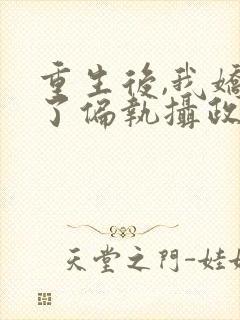 重生後,我嬌
了偏執攝政
天堂之門-娃娃